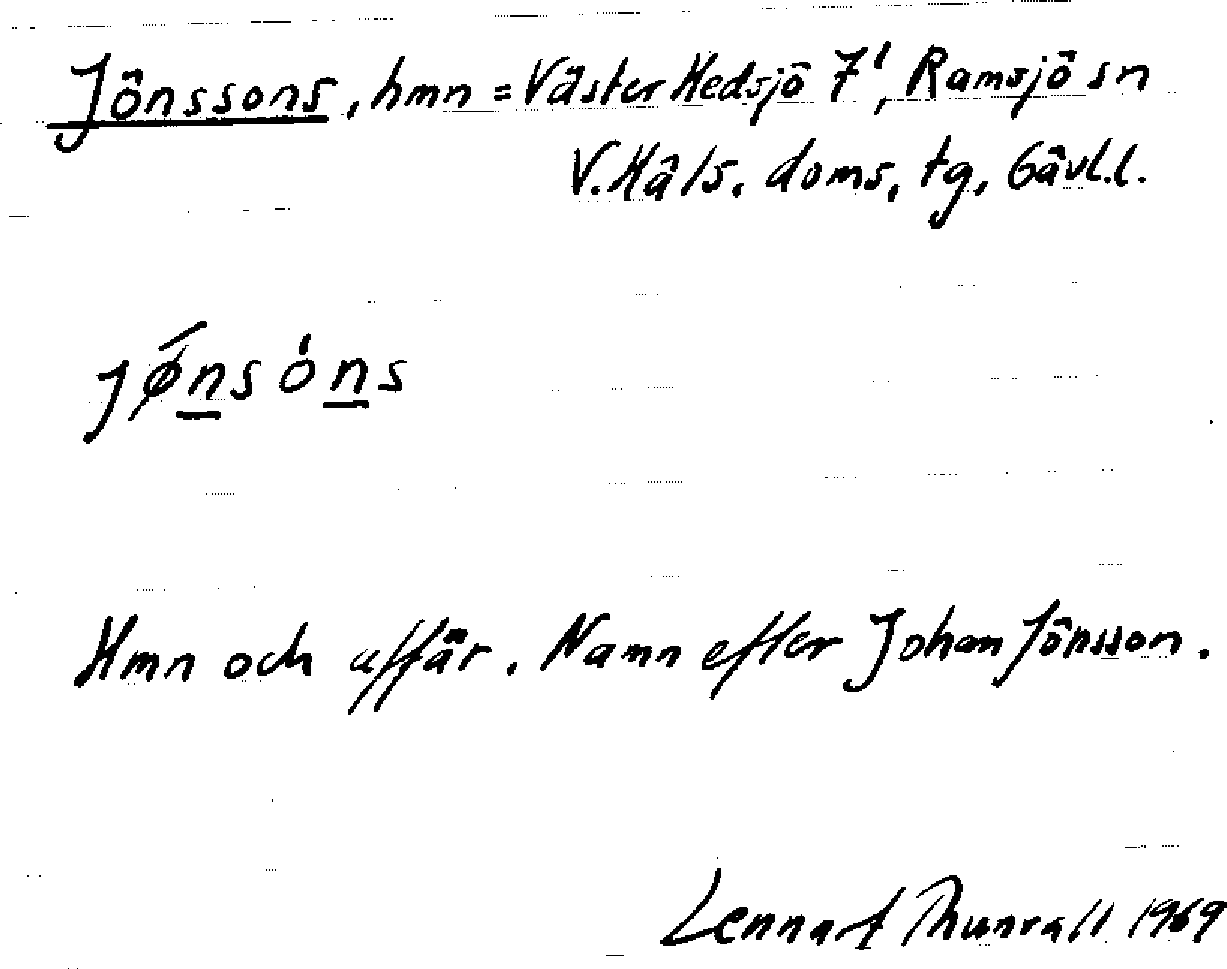 Jönssons, hmn = Väster Hedsjö 7¹, Ramsjö sn
V. Häls. doms. tg, Gävl.l.
jǿnsòns
Hmn och affär. Namn efter Johan Jönsson.
Lennart Thunvall 1969